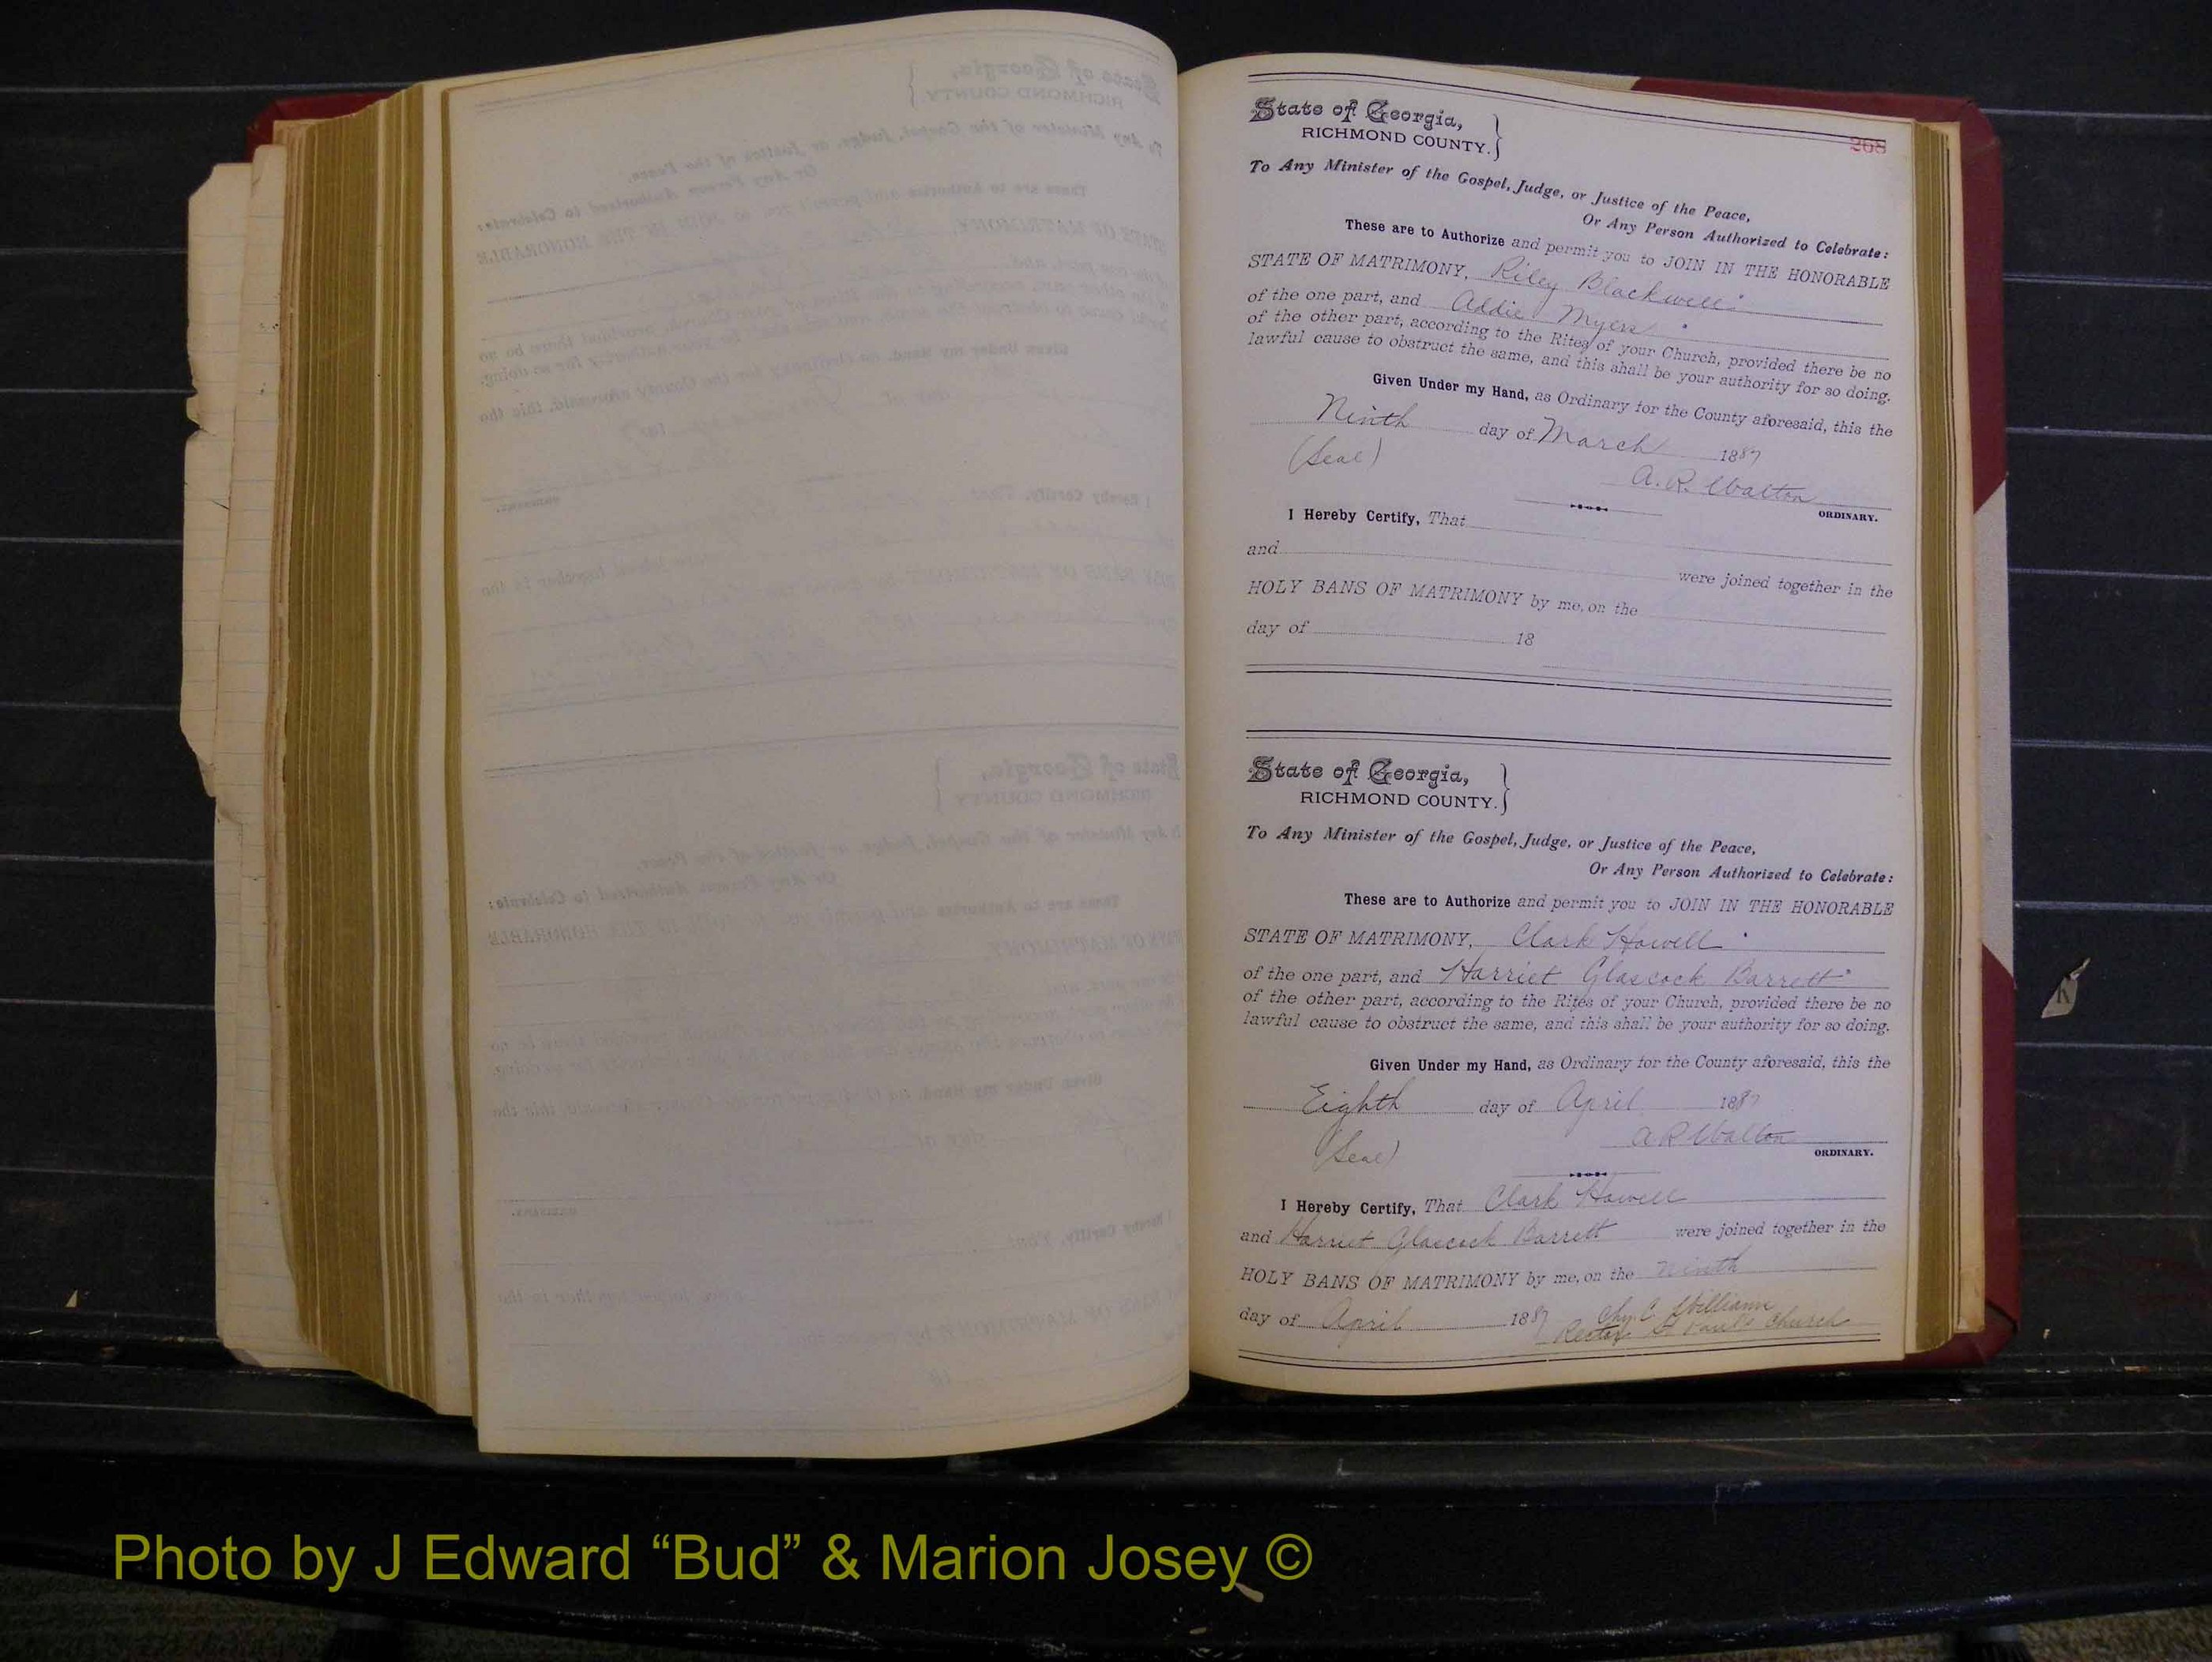 268
State of Georgia,
RICHMOND COUNTY.
To Any Minister of the Gospel, Judge, or Justice of the Peace,
Or Any Person Authorized to Celebrate:
These are to Authorize and permit you to JOIN IN THE HONORABLE
STATE OF MATRIMONY, Riley Blackwell
of the one part, and Addie Myers
of the other part, according to the Rites of your Church, provided there be no
lawful cause to obstruct the same, and this shall be your authority for so doing.
Given Under my Hand, as Ordinary for the County aforesaid, this the
Ninth day of March 1887
(Seal)
A. R. Walton
ORDINARY.
I Hereby Certify, That
and were joined together in the
HOLY BANS OF MATRIMONY by me, on the
day of 18
State of Georgia,
RICHMOND COUNTY.
To Any Minister of the Gospel, Judge, or Justice of the Peace,
Or Any Person Authorized to Celebrate:
These are to Authorize and permit you to JOIN IN THE HONORABLE
STATE OF MATRIMONY, Clark Howell
of the one part, and Harriet Glascock Barrett
of the other part, according to the Rites of your Church, provided there be no
lawful cause to obstruct the same, and this shall be your authority for so doing.
Given Under my Hand, as Ordinary for the County aforesaid, this the
Eighth day of April 1887
(Seal)
A R Walton
ORDINARY.
I Hereby Certify, That Clark Howell
and Harriet Glascock Barrett were joined together in the
HOLY BANS OF MATRIMONY by me, on the Ninth
day of April 1887 C Williams
Rector St Paul's Church
Photo by J Edward “Bud” & Marion Josey ©